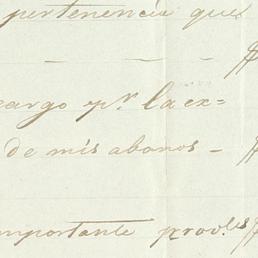 pertenencia que
cargo pr. la ex=
de mis abonos -
importante prov.les